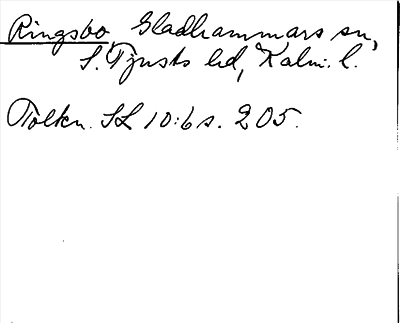 Ringsbo, Gladhammars sn,
S. Tjusts hd, Kalm. l.
Tolkn. SL 10:6 s. 205.